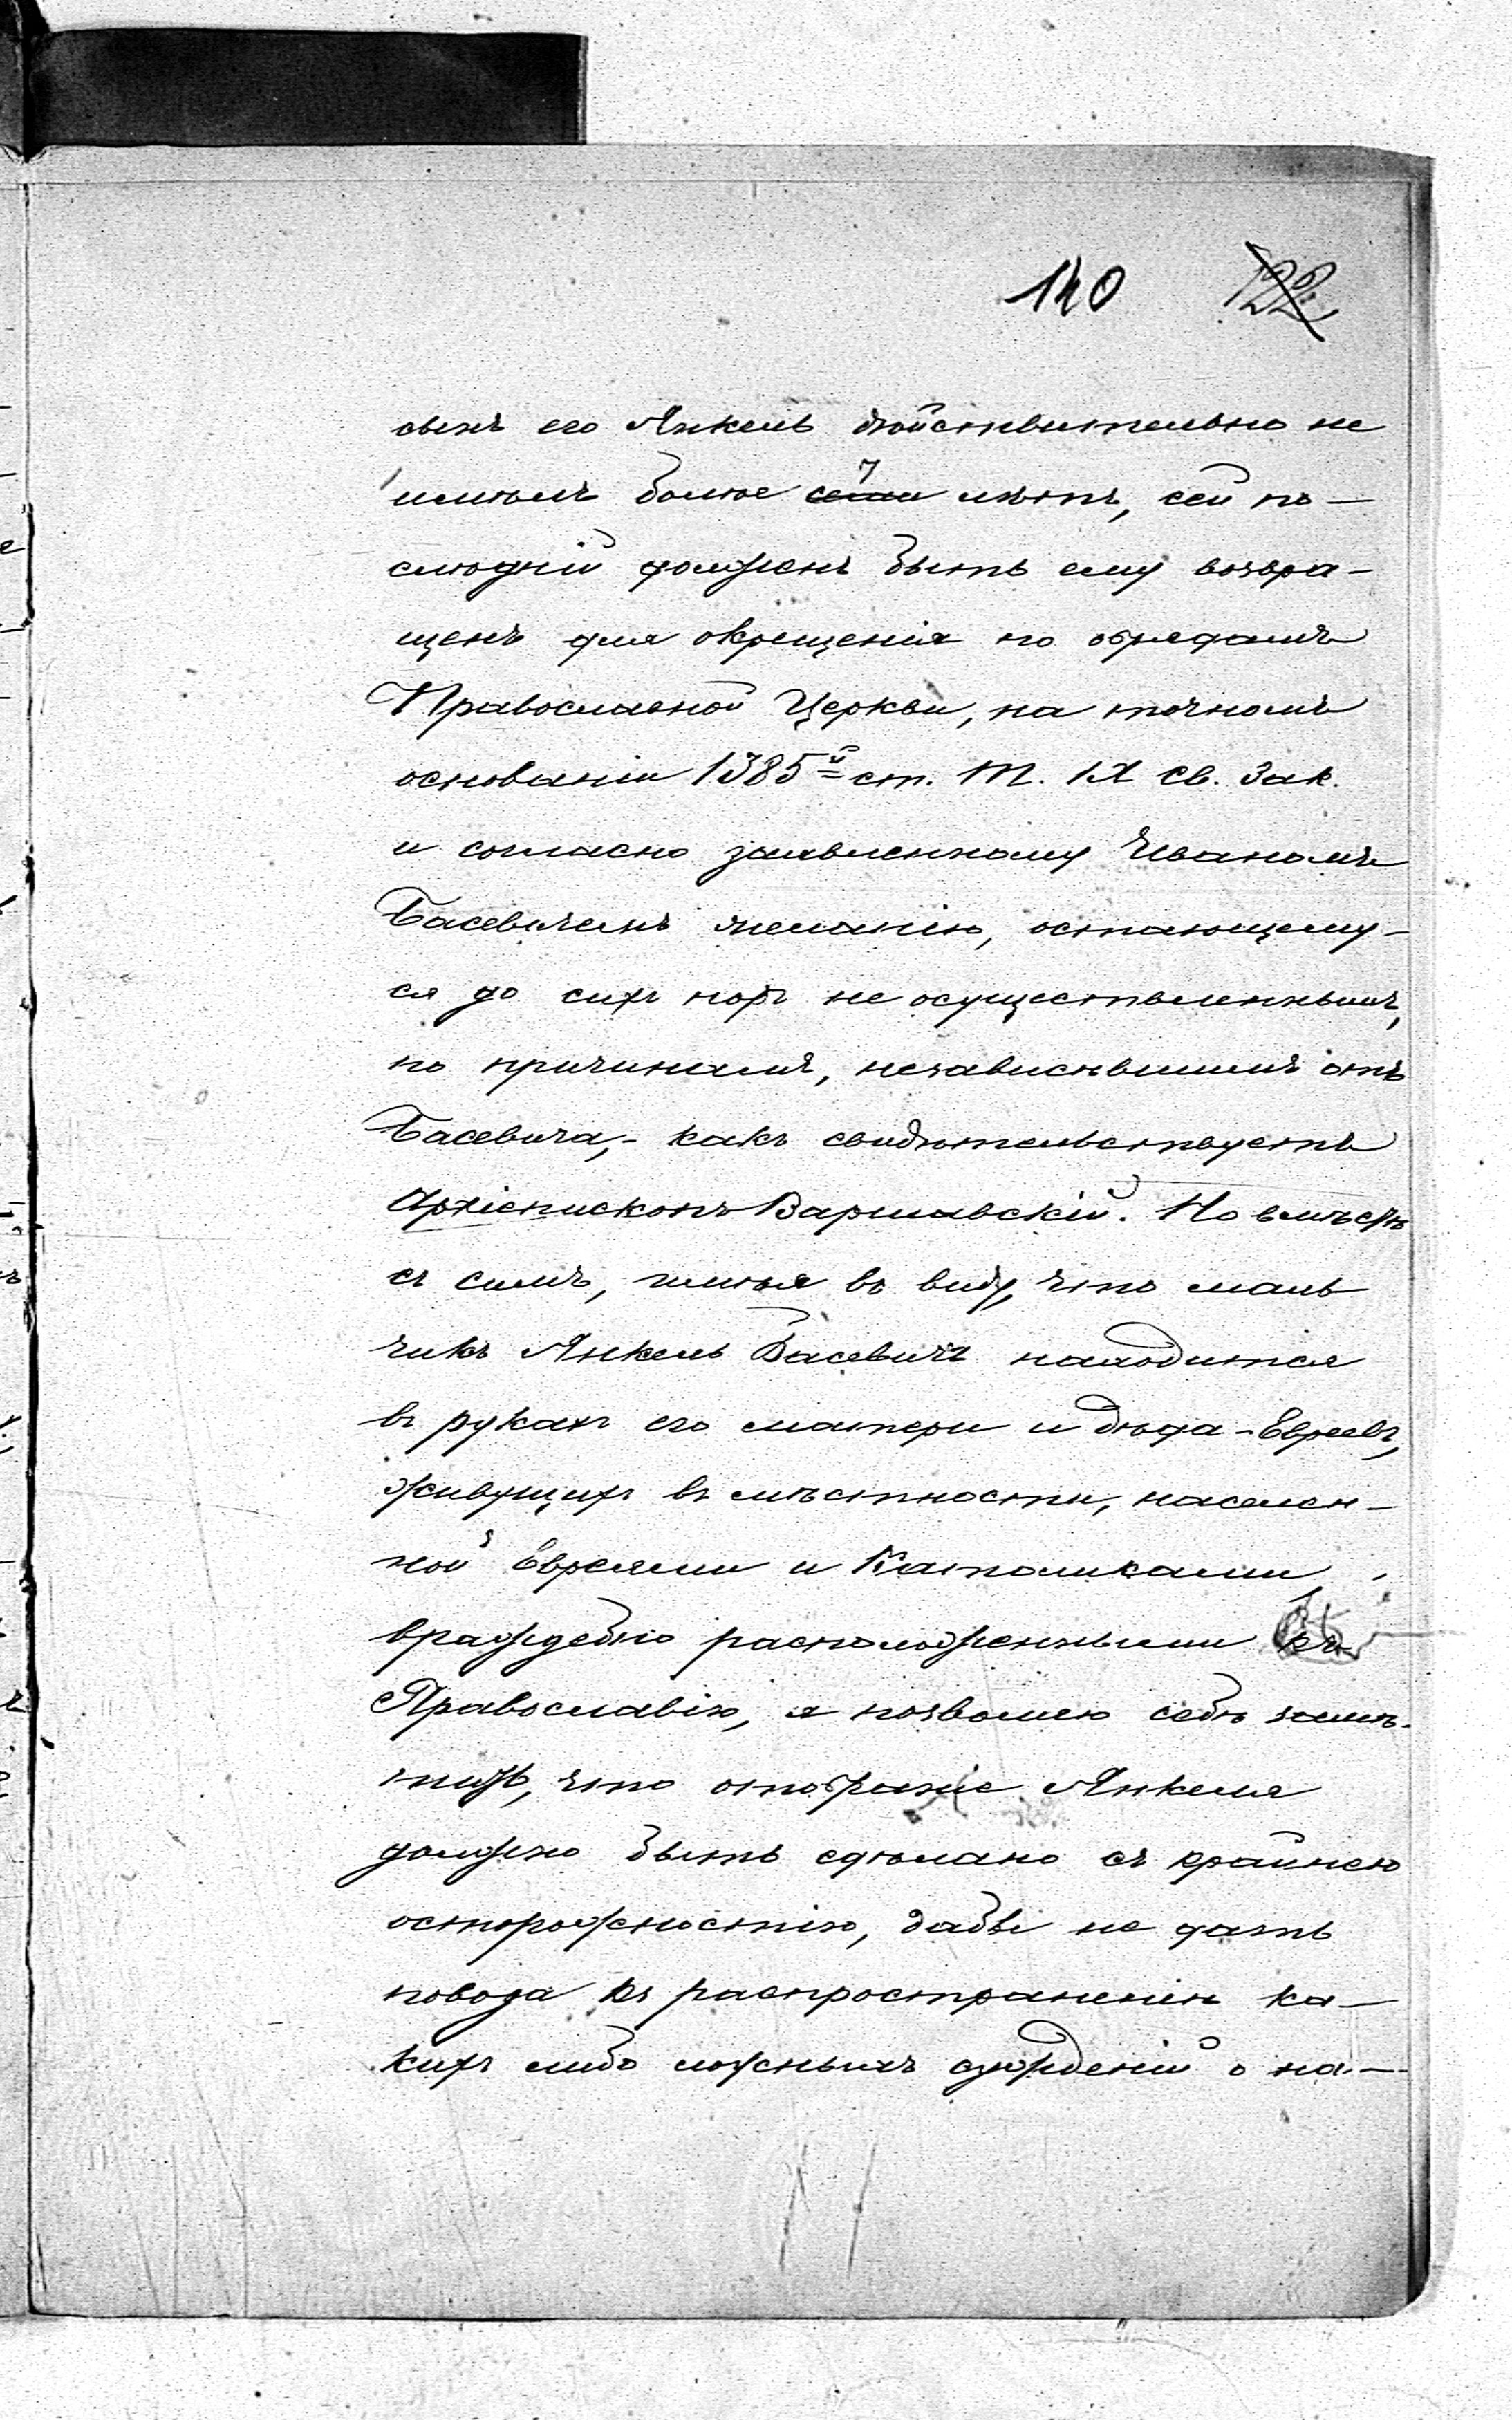 140 122
сынъ его Янкель дѣйствительно не
имѣетъ болѣе семи 7 лѣтъ, сей по-
слѣдній долженъ быть ему возвра-
щенъ для окрещенія по обрядамъ
Православной Церкви, на точномъ
основаніи 1385й ст. Т. IX Св. Зак.
и согласно заявленному Иваномъ
Басевичемъ желанію, остающему-
ся до сихъ поръ не осуществленнымъ,
по причинамъ, независѣвшимъ отъ
Басевича,- какъ свидѣтельствуетъ
Архіепископъ Варшавскій. Но вмѣстѣ
съ симъ, имѣя въ виду, что маль
чикъ Янкель Басевичъ находится
въ рукахъ его матери и дѣда-Евреевъ,
живущихъ въ мѣстности, населен-
ной Евреями и Католиками,
враждебно расположенными къ
Православію, я позволяю себѣ замѣ-
тить, что отобраніе Янкеля
должно быть сдѣлано съ крайнею
осторожностію, дабы не дать
повода къ распространенію ка-
кихъ либо ложныхъ сужденій о на-